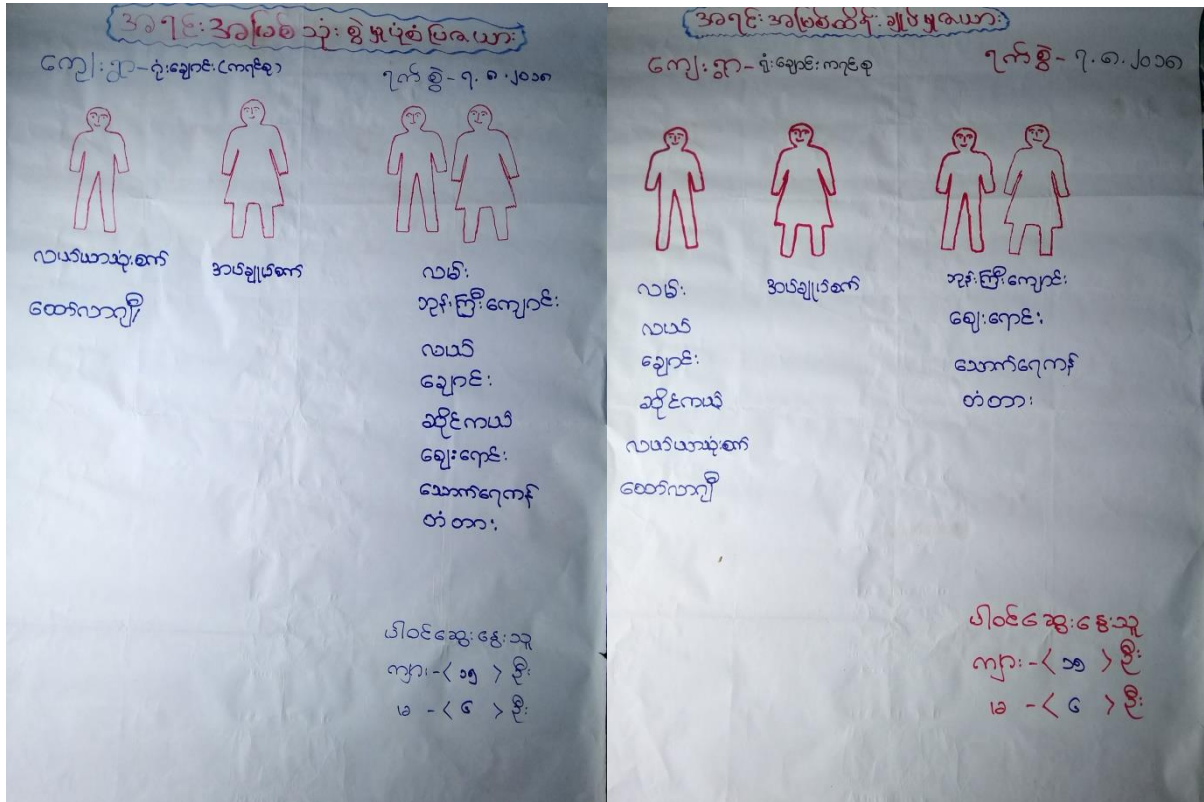 အရင်းအမြစ်သုံးစွဲမှုပုံစံပြဇယား
ကျေးရွာ-ရုံးချောင်း(ကရင်စု)
ရက်စွဲ-၇.၈.၂၀၁၈
လယ်ယာသုံးစက်
ထော်လာဂျီ
အပ်ချုပ်စက်
လမ်း
ဘုန်းကြီးကျောင်း
လယ်
ချောင်း
ဆိုင်ကယ်
ဈေးရောင်း
သောက်ရေကန်
တံတား
ပါဝင်ဆွေးနွေးသူ
ကျား-<၁၅>ဦး
မ-<၆>ဦး
အရင်းအမြစ်ထိန်းချုပ်မှုဇယား
ကျေးရွာ-ရုံးချောင်းကရင်စု
ရက်စွဲ-၇.၈.၂၀၁၈
လမ်း
လယ်
ချောင်း
ဆိုင်ကယ်
လယ်ယာသုံးစက်
ထော်လာဂျီ
အပ်ချုပ်စက်
ဘုန်းကြီးကျောင်း
ဈေးရောင်း
သောက်ရေကန်
တံတား
ပါဝင်ဆွေးနွေးသူ
ကျား-<၁၅>ဦး
မ-<၆>ဦး